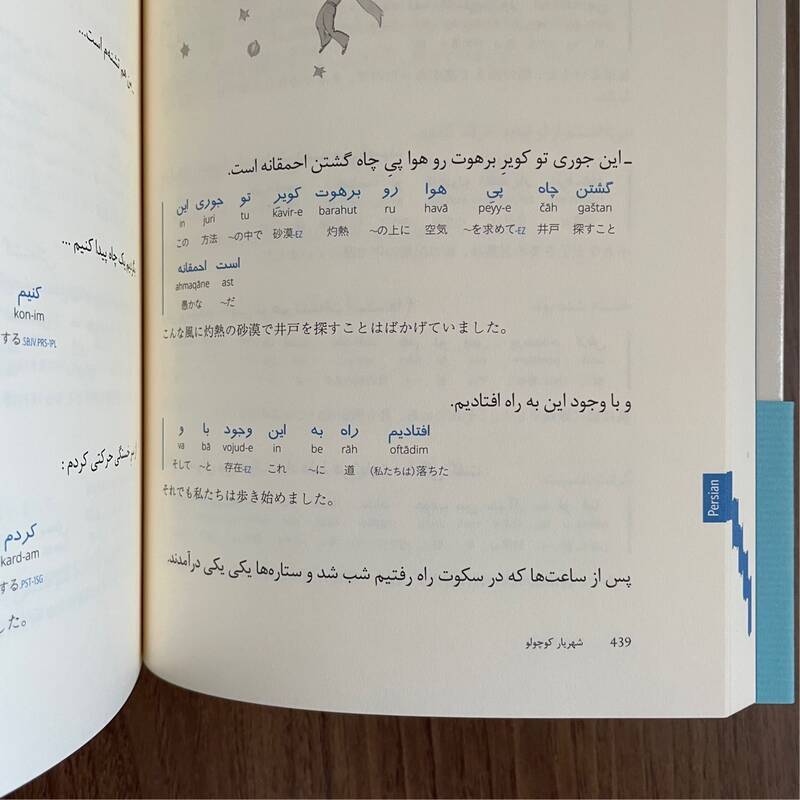 ـ این جوری تو کویرِ برهوت رو هوا پیِ چاه گشتن احمقانه است.
این جوری تو کویرِ برهوت رو هوا پیِ چاه گشتن
in juri tu kavir-e barahut ru havā peyy-e čāh gaštan
この 方法 〜の中で 砂漠-EZ 灼熱 〜の上に 空気 〜を求めて-EZ 井戸 探すこと
احمقانه است
ahmaqāne ast
愚かな 〜だ
こんな風に灼熱の砂漠で井戸を探すことはばかげていました。
و با وجود این به راه افتادیم.
و با وجود این به راه افتادیم
va bā vojud-e in be rāh oftādim
そして 〜と 存在-EZ これ 〜に 道 (私たちは)落ちた
それでも私たちは歩き始めました。
پس از ساعت‌ها که در سکوت راه رفتیم شب شد و ستاره‌ها یکی یکی درآمدند.
439 شهریار کوچولو
Persian
پیدا کنیم ...
کنیم
kon-im
する.SBJV.PRS-1PL
حرکتی کردم :
کردم
kard-am
する.PST-1SG
した。